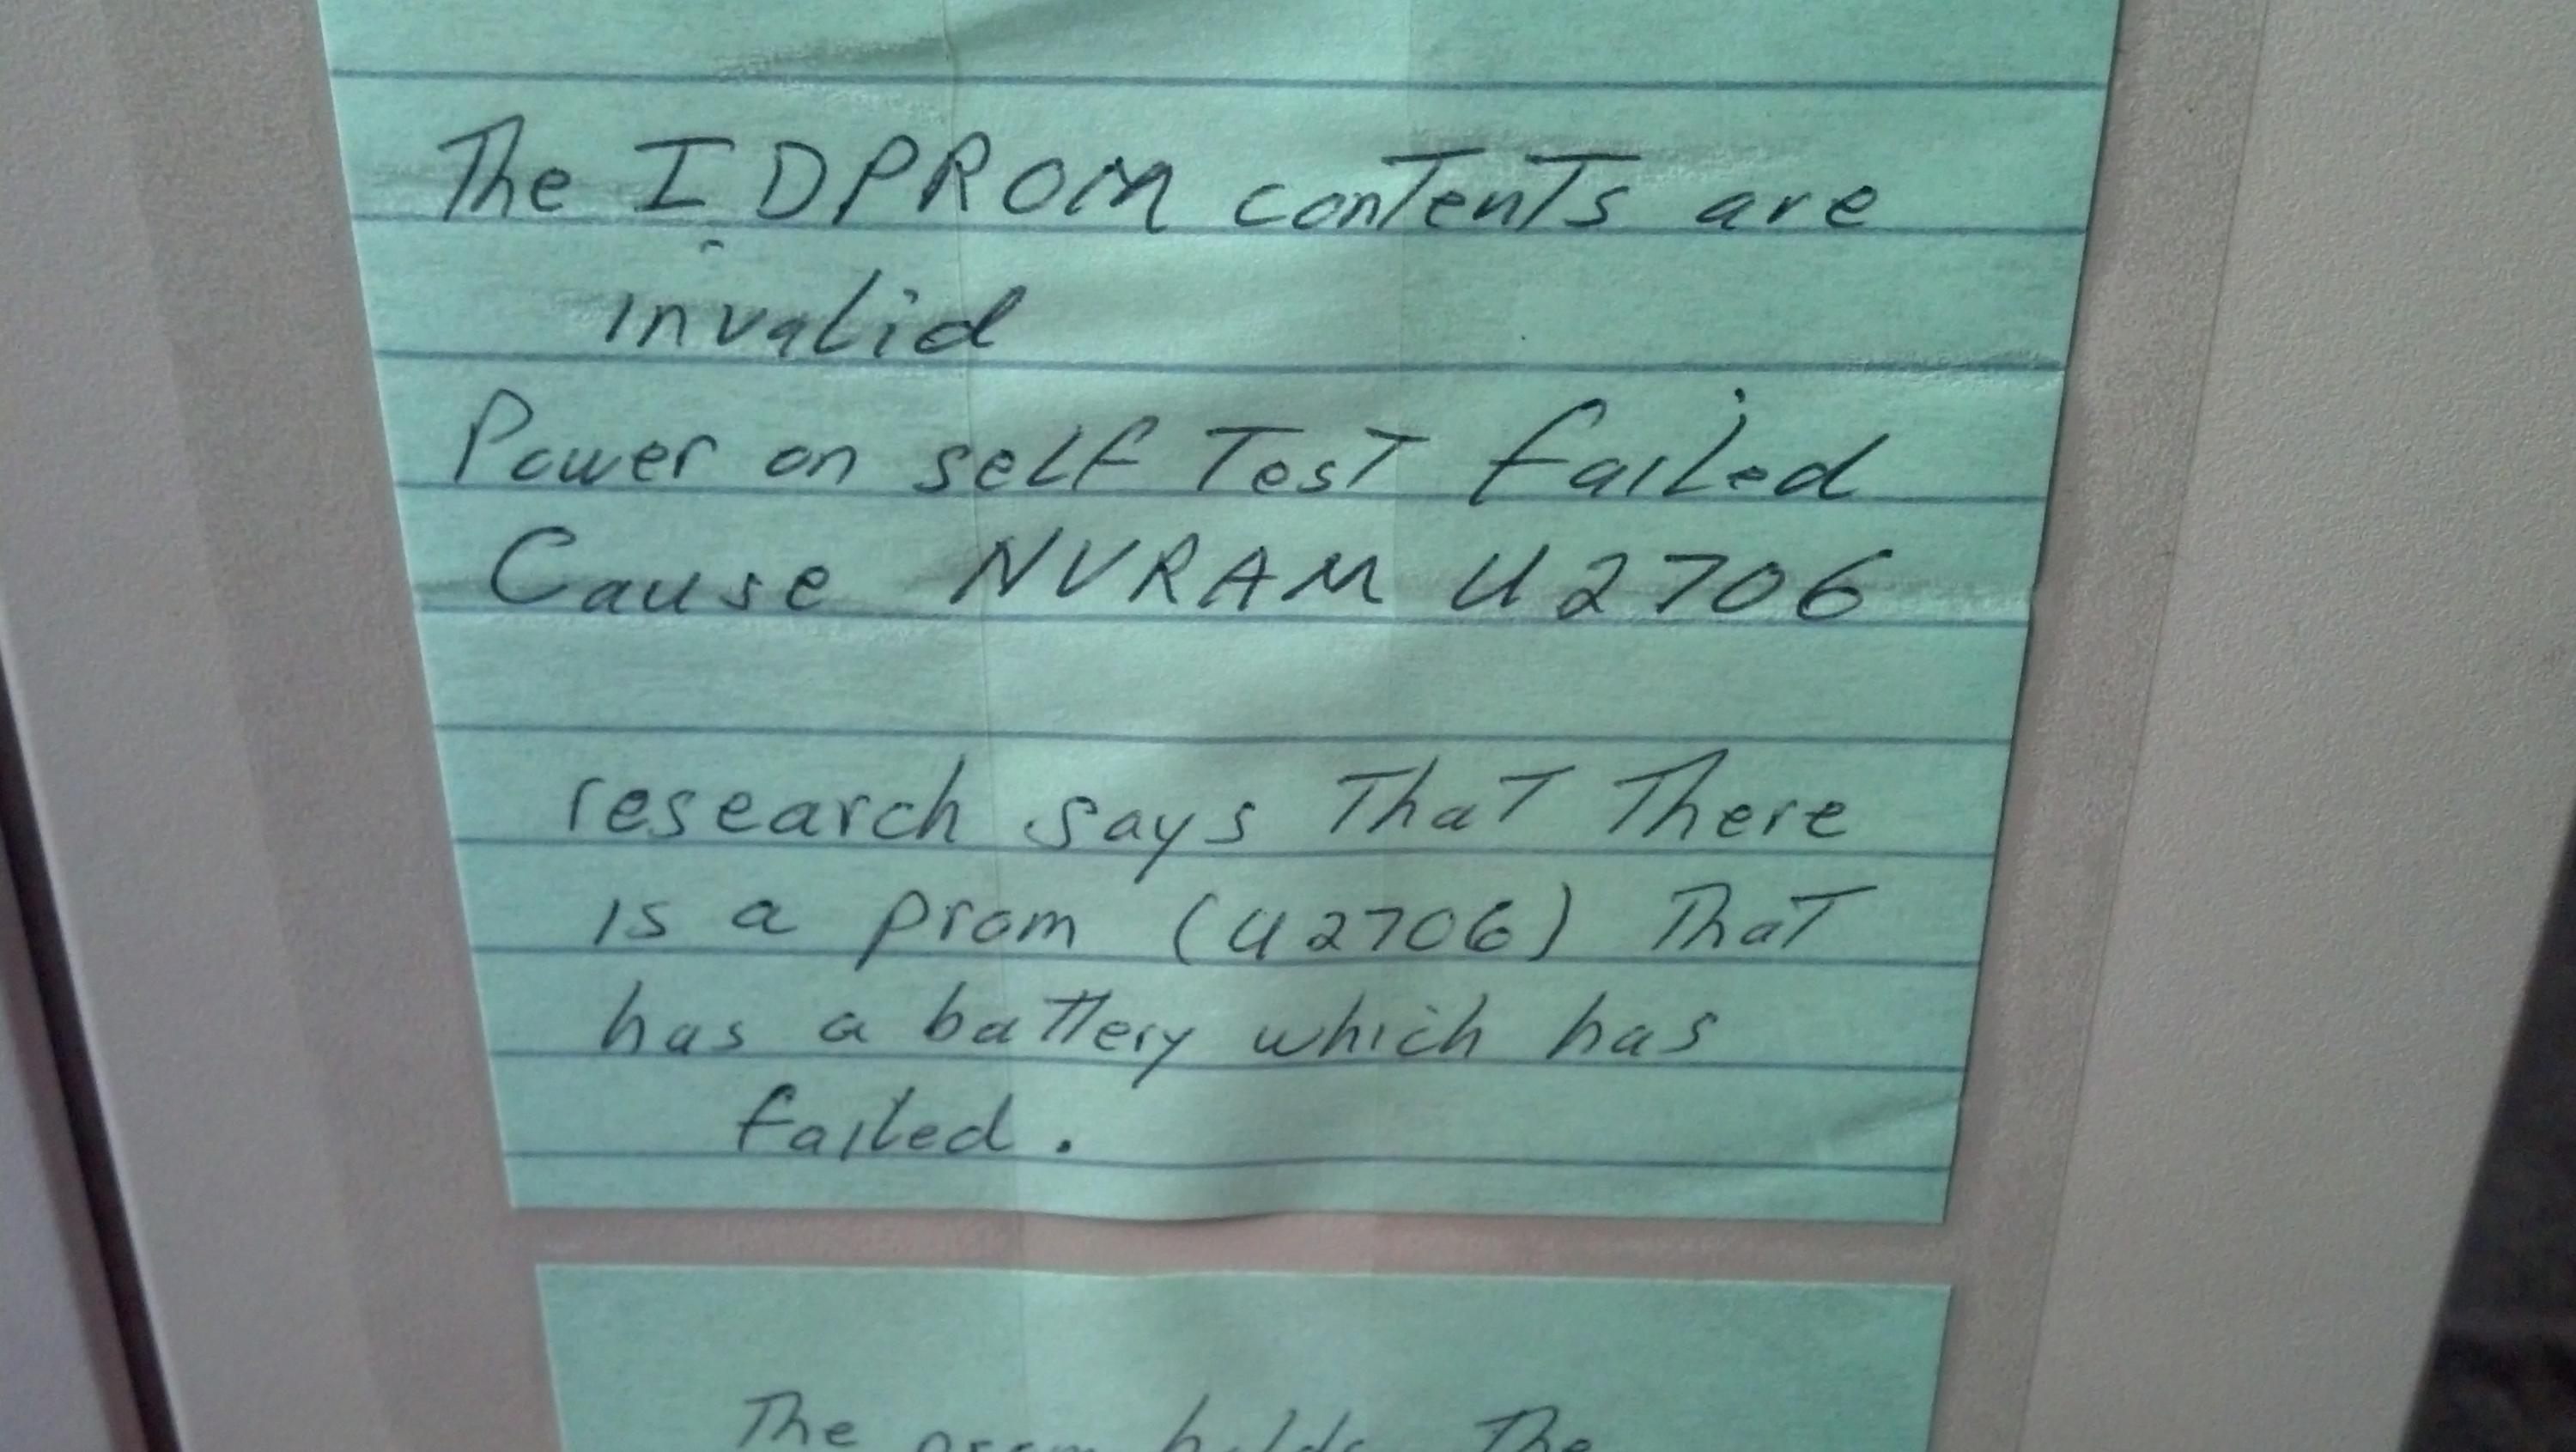 The IDPROM contents are
invalid
Power on self Test failed
Cause NVRAM U2706
research says That There
is a prom (U2706) That
has a battery which has
failed.
The prom holds The